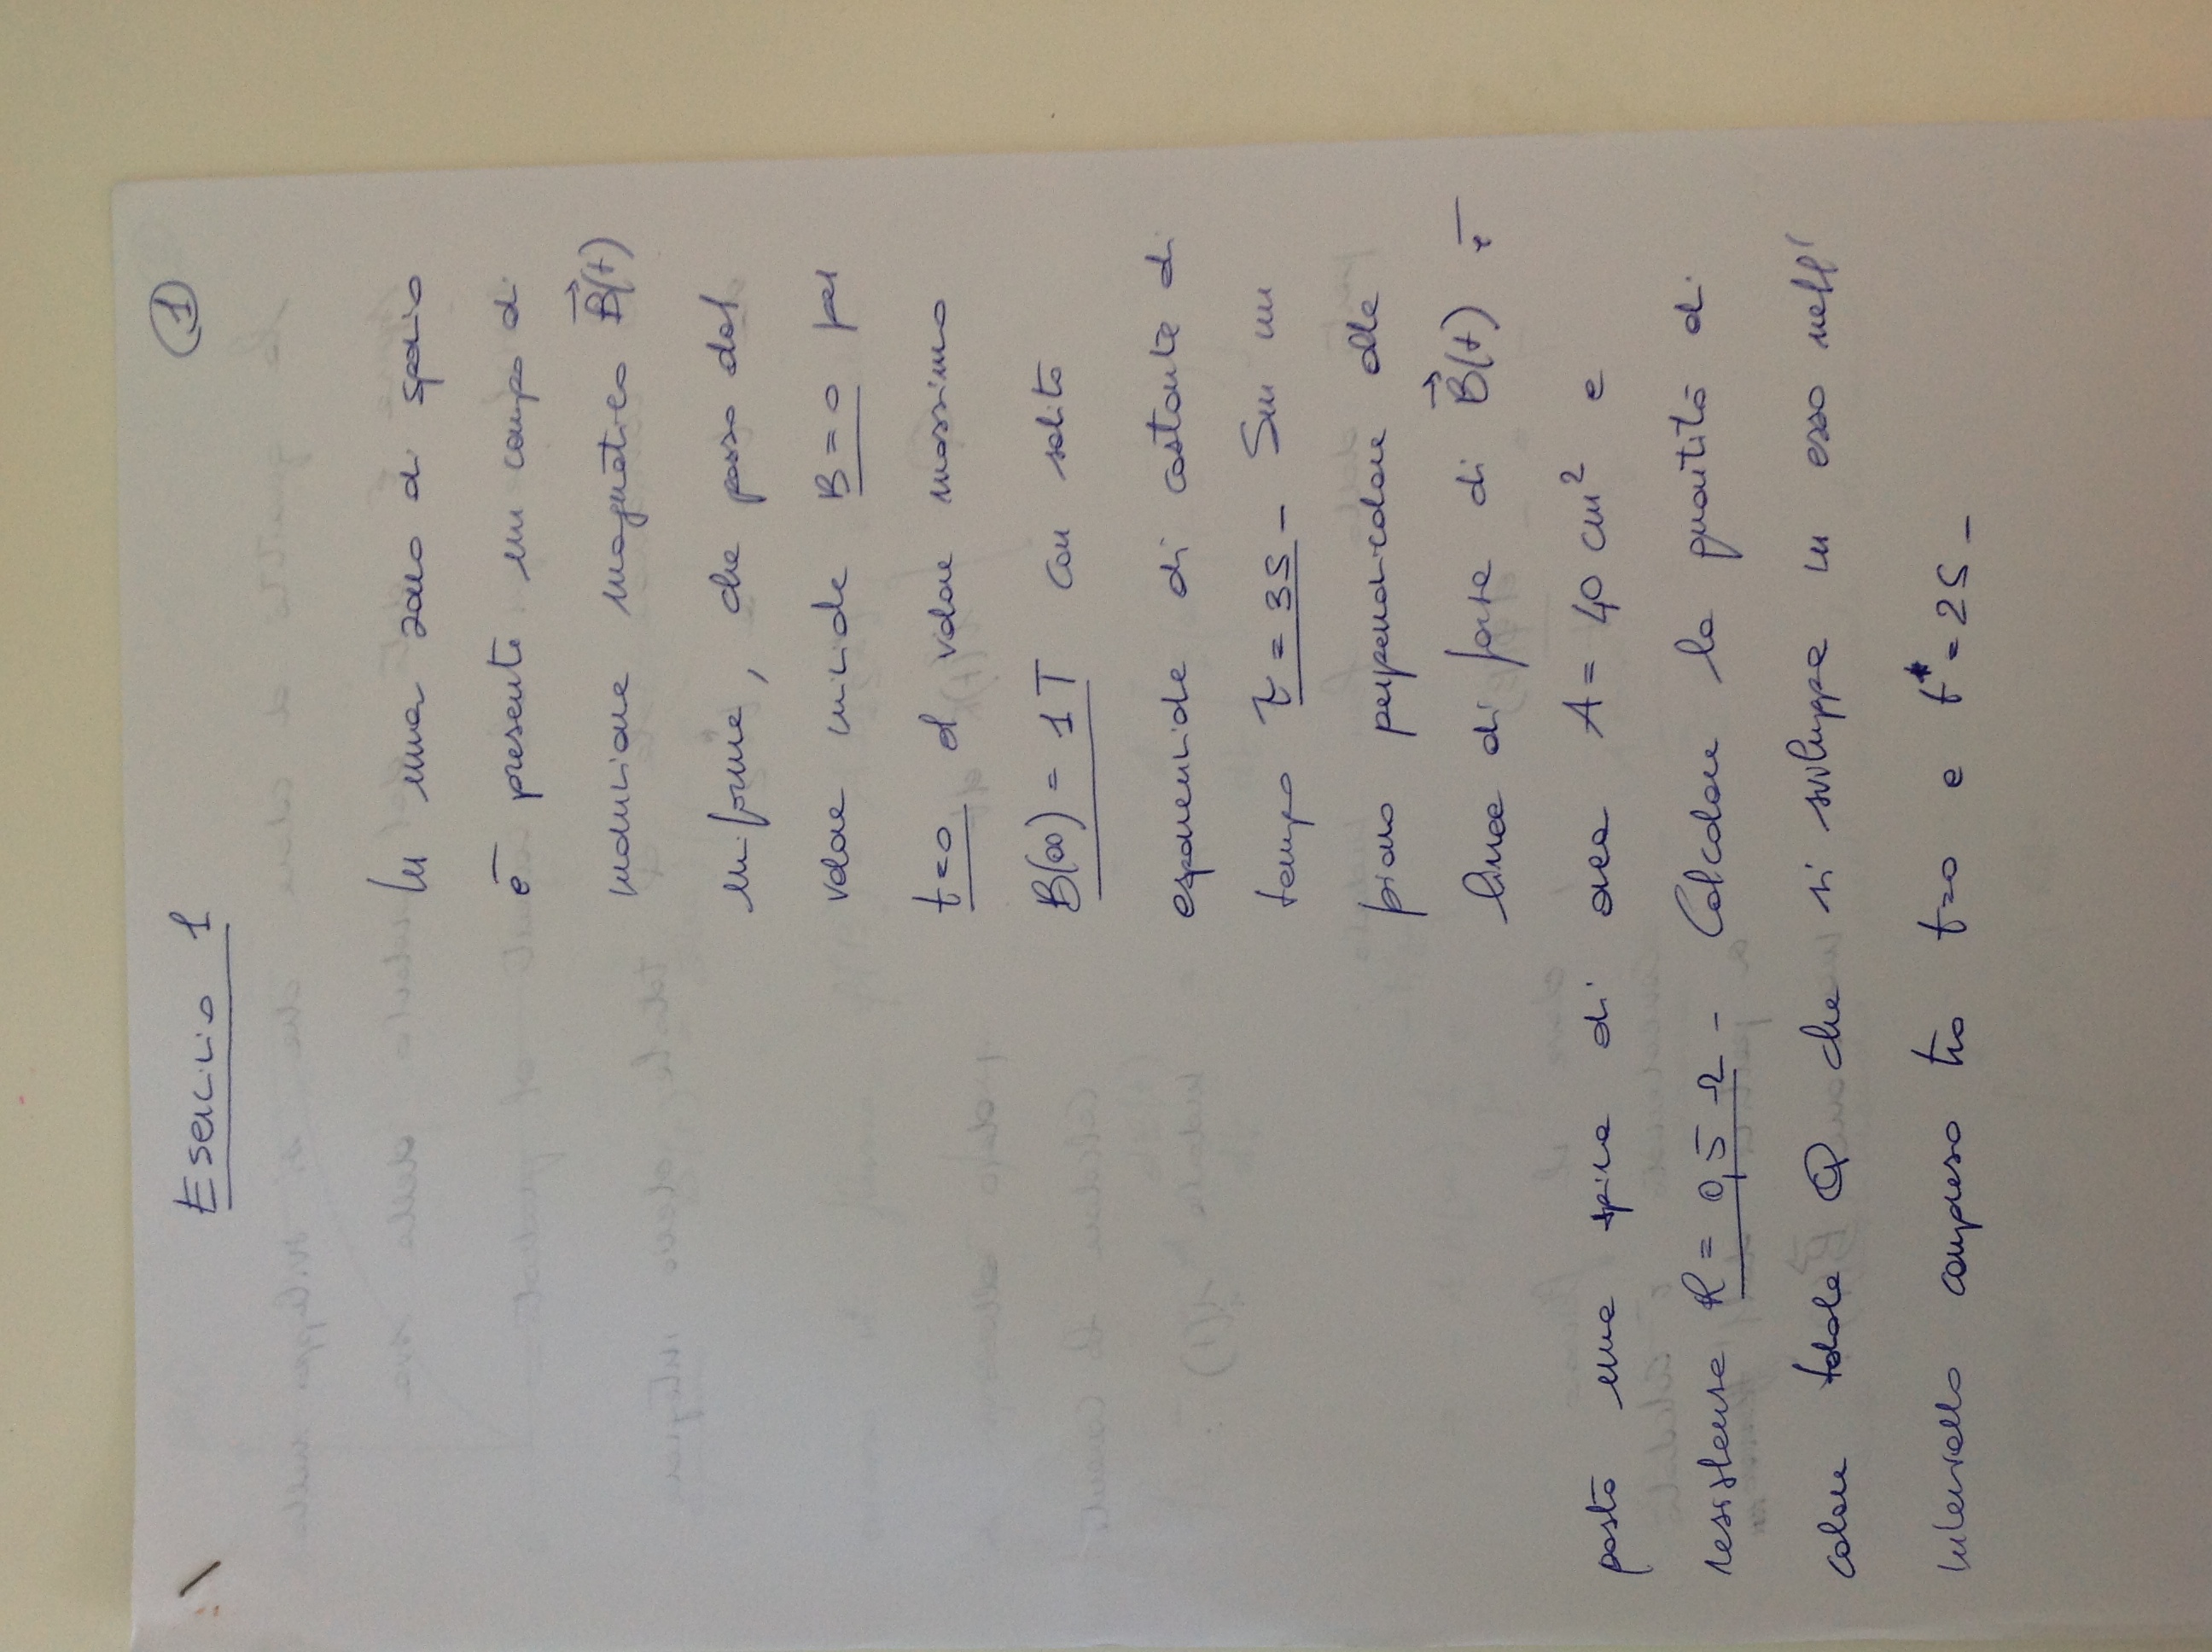 Esercizio 1
1
In una zona di spazio
è presente un campo di
induzione magnetica B(t)
uniforme, che passa dal
valore iniziale B = 0 per
t=0 al valore massimo
B(∞) = 1 T con salita
esponenziale di costante di
tempo τ = 3S - Su un
piano perpendicolare alle
linee di forza di B(t) è
posta una spira di area A = 40 cm² e
resistenza R = 0,5 Ω - Calcolare la quantità di
calore totale Q che si sviluppa in essa nell'
intervallo compreso tra t=0 e t* = 2S -